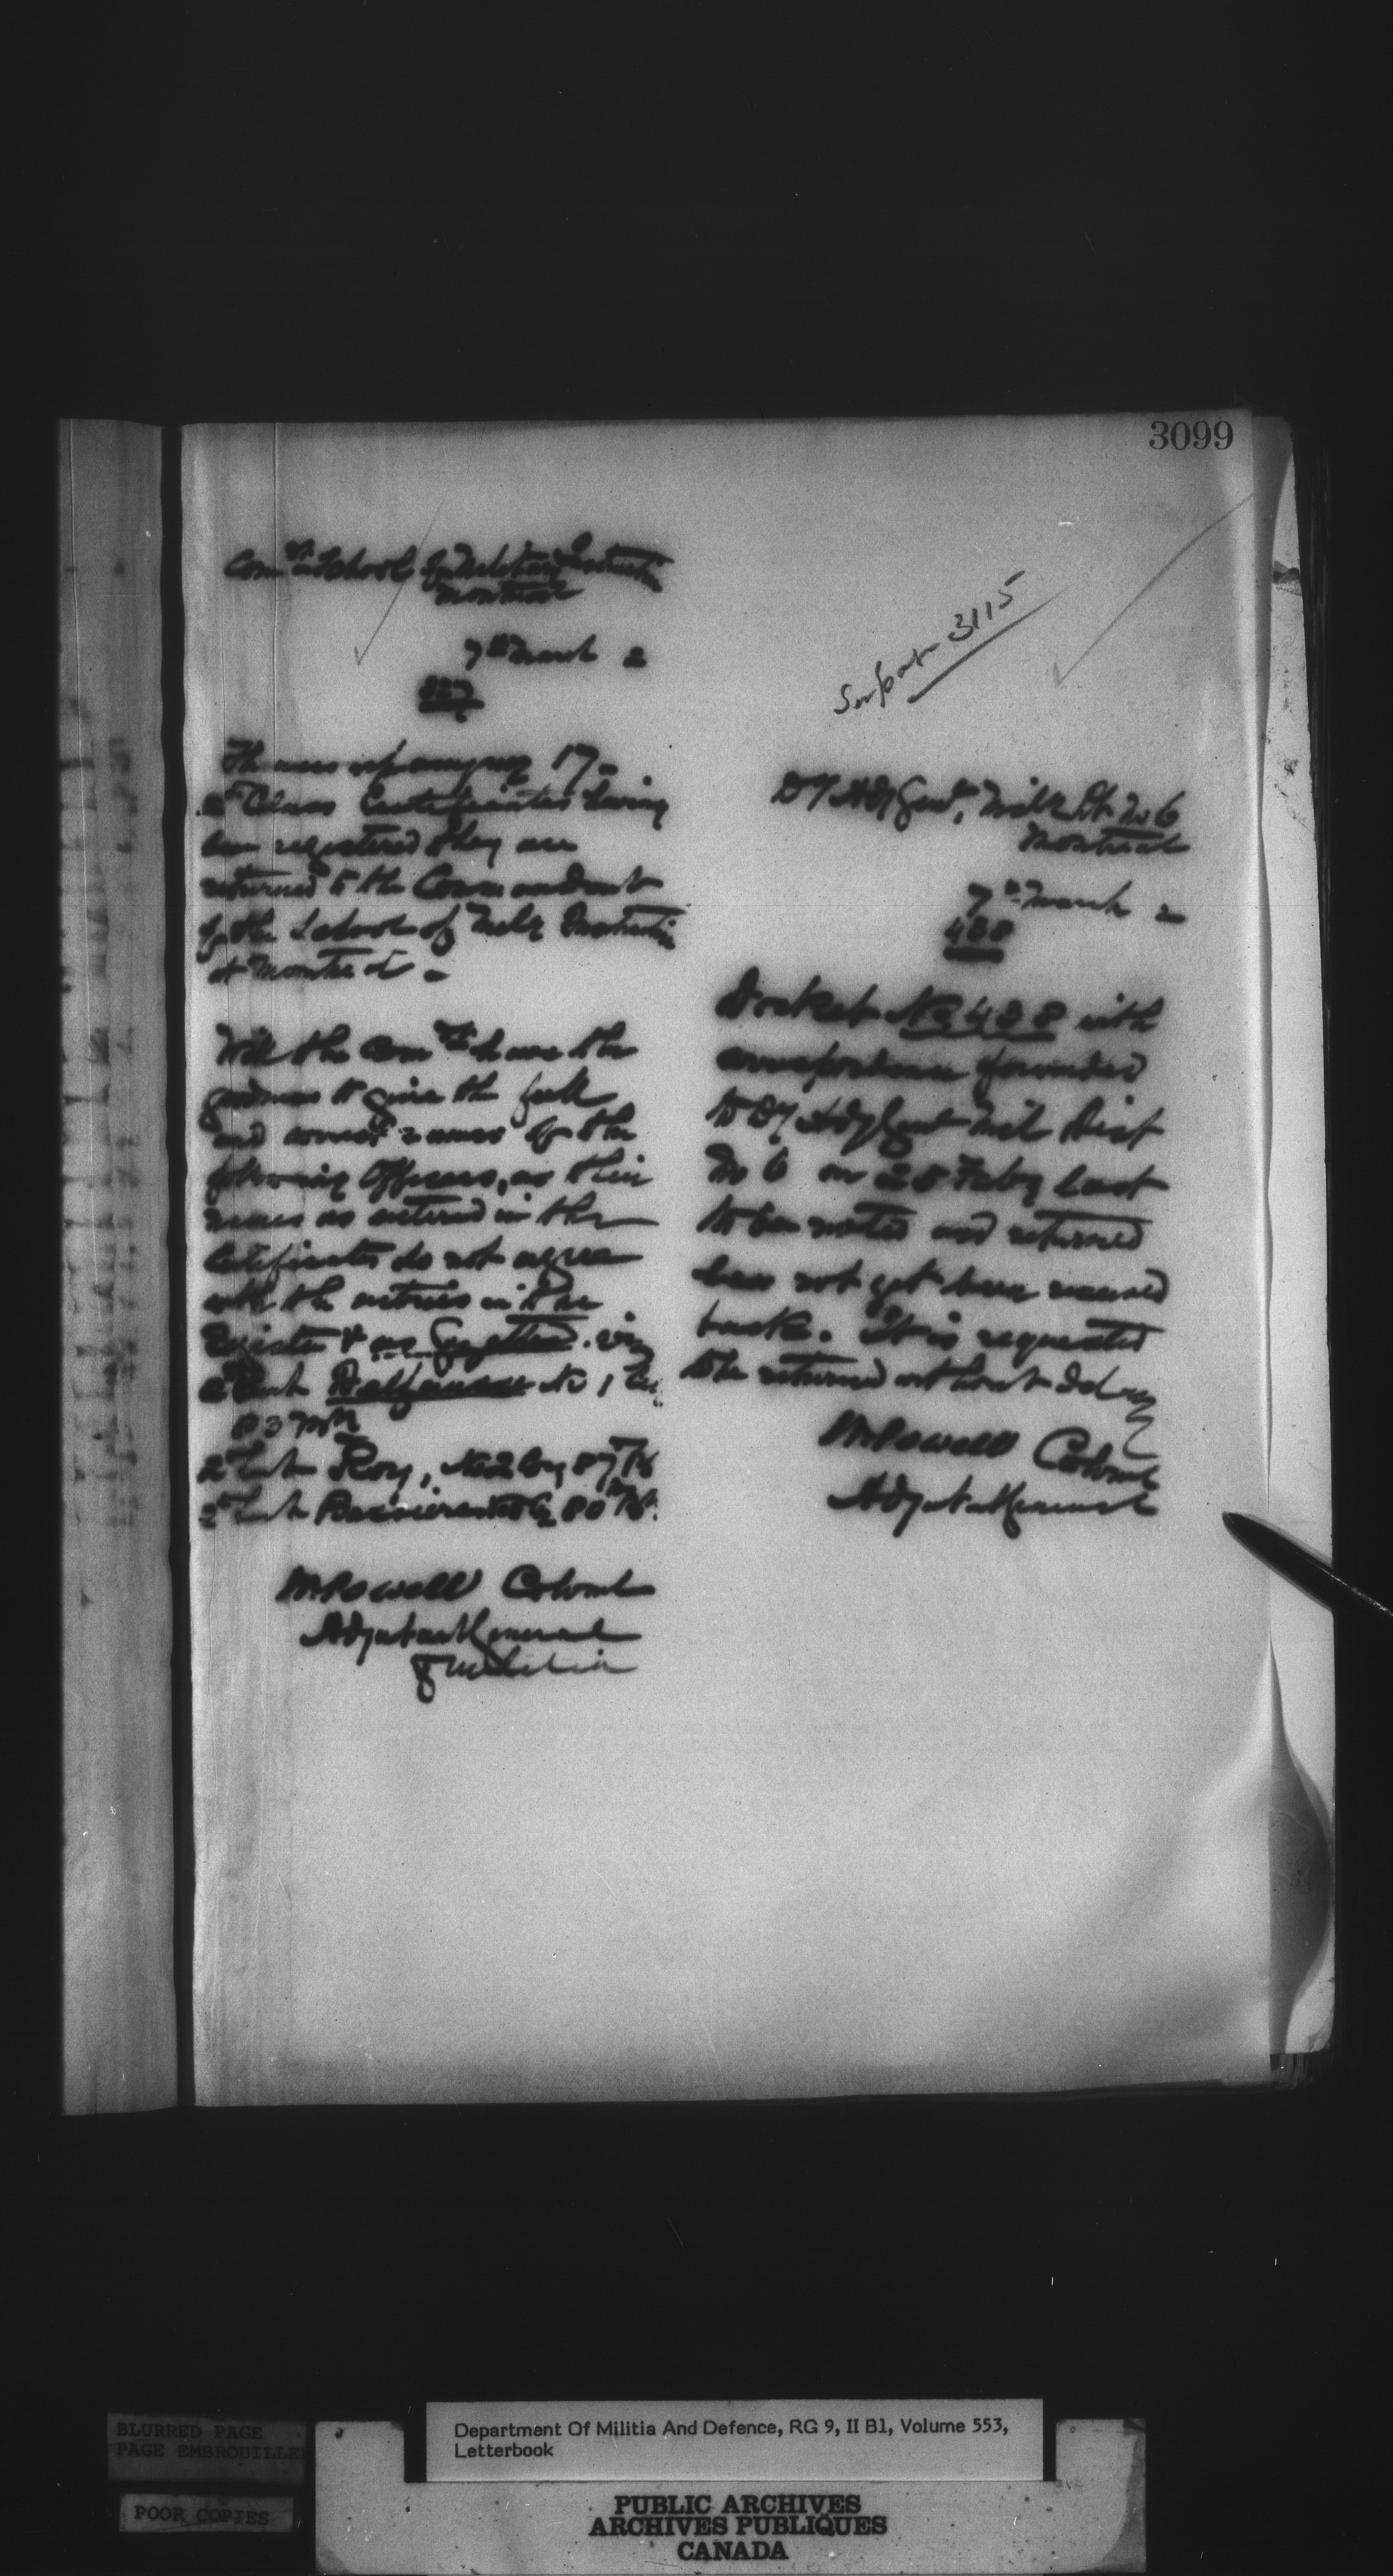 3099
Comdt School of Military Instruction
Montreal
7th March 2
The accompanying 17
2nd Class Certificates having
been registered they are
returned to the Commandant
of the School of Mily Instruction
at Montreal
Will the Comdt have the
goodness to give the full
and correct names of the
following Officers, as their
names as entered in the
Certificates do not agree
with the entries in the
Register & as Gazetted. viz
2nd Lieut No 1 Co
83 Bn
2nd Lieut Roy, No 2 Coy 87th
2nd Lieut 80th
W Powell Colonel
Adjutant General
of Militia
See page 3115
Dy Adj Genl, Mil Dt No 6
Montreal
7th March 2
438
Docket No 438 with
correspondence forwarded
to Dy Adj Genl Mil Dist
No 6 on 28 Feby last
to be noted and returned
has not yet been received
back. It is requested
to be returned without delay
W Powell Colonel
Adjutant General
BLURRED PAGE
PAGE EMBROUILLEE
POOR COPIES
Department Of Militia And Defence, RG 9, II B1, Volume 553,
Letterbook
PUBLIC ARCHIVES
ARCHIVES PUBLIQUES
CANADA